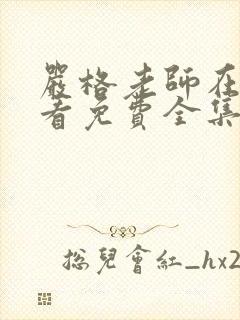 嚴格老師在
看免費全集
總兒會紅_hx2